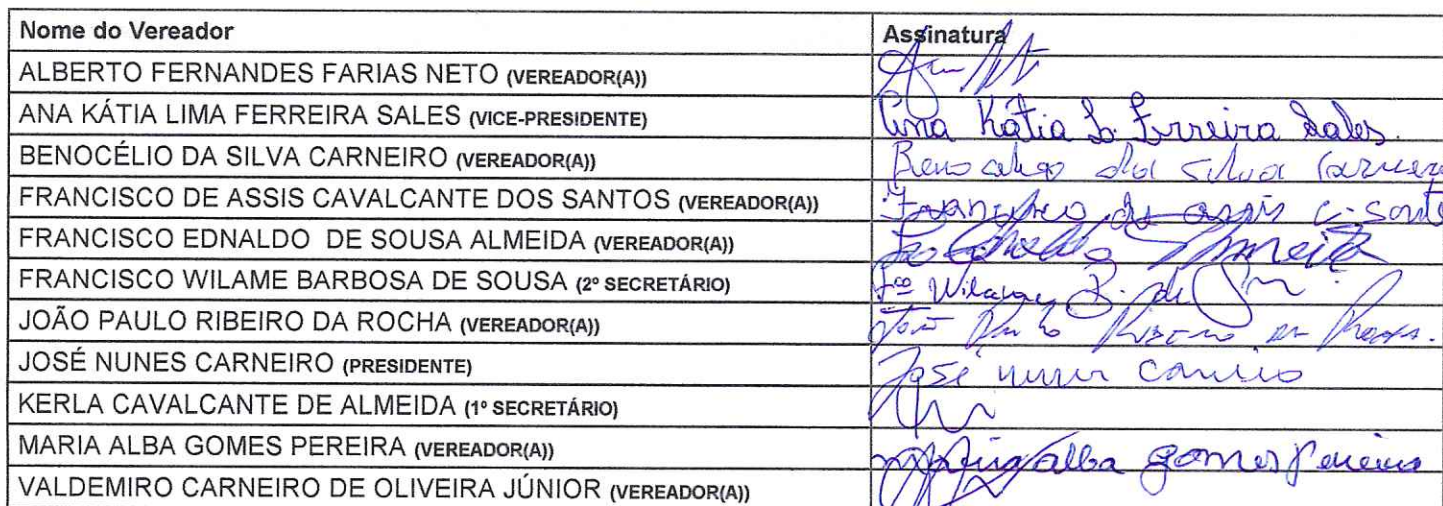 Nome do Vereador Assinatura
ALBERTO FERNANDES FARIAS NETO (VEREADOR(A))
ANA KÁTIA LIMA FERREIRA SALES (VICE-PRESIDENTE) Ana Kátia L. Ferreira Sales.
BENOCÉLIO DA SILVA CARNEIRO (VEREADOR(A)) da Silva
FRANCISCO DE ASSIS CAVALCANTE DOS SANTOS (VEREADOR(A)) Francisco de assis C.
FRANCISCO EDNALDO DE SOUSA ALMEIDA (VEREADOR(A)) Almeida
FRANCISCO WILAME BARBOSA DE SOUSA (2º SECRETÁRIO) Fco Wilame B. de
JOÃO PAULO RIBEIRO DA ROCHA (VEREADOR(A)) João Paulo Ribeiro da Rocha.
JOSÉ NUNES CARNEIRO (PRESIDENTE) José nunes
KERLA CAVALCANTE DE ALMEIDA (1º SECRETÁRIO)
MARIA ALBA GOMES PEREIRA (VEREADOR(A)) Maria alba gomes Pereira
VALDEMIRO CARNEIRO DE OLIVEIRA JÚNIOR (VEREADOR(A))